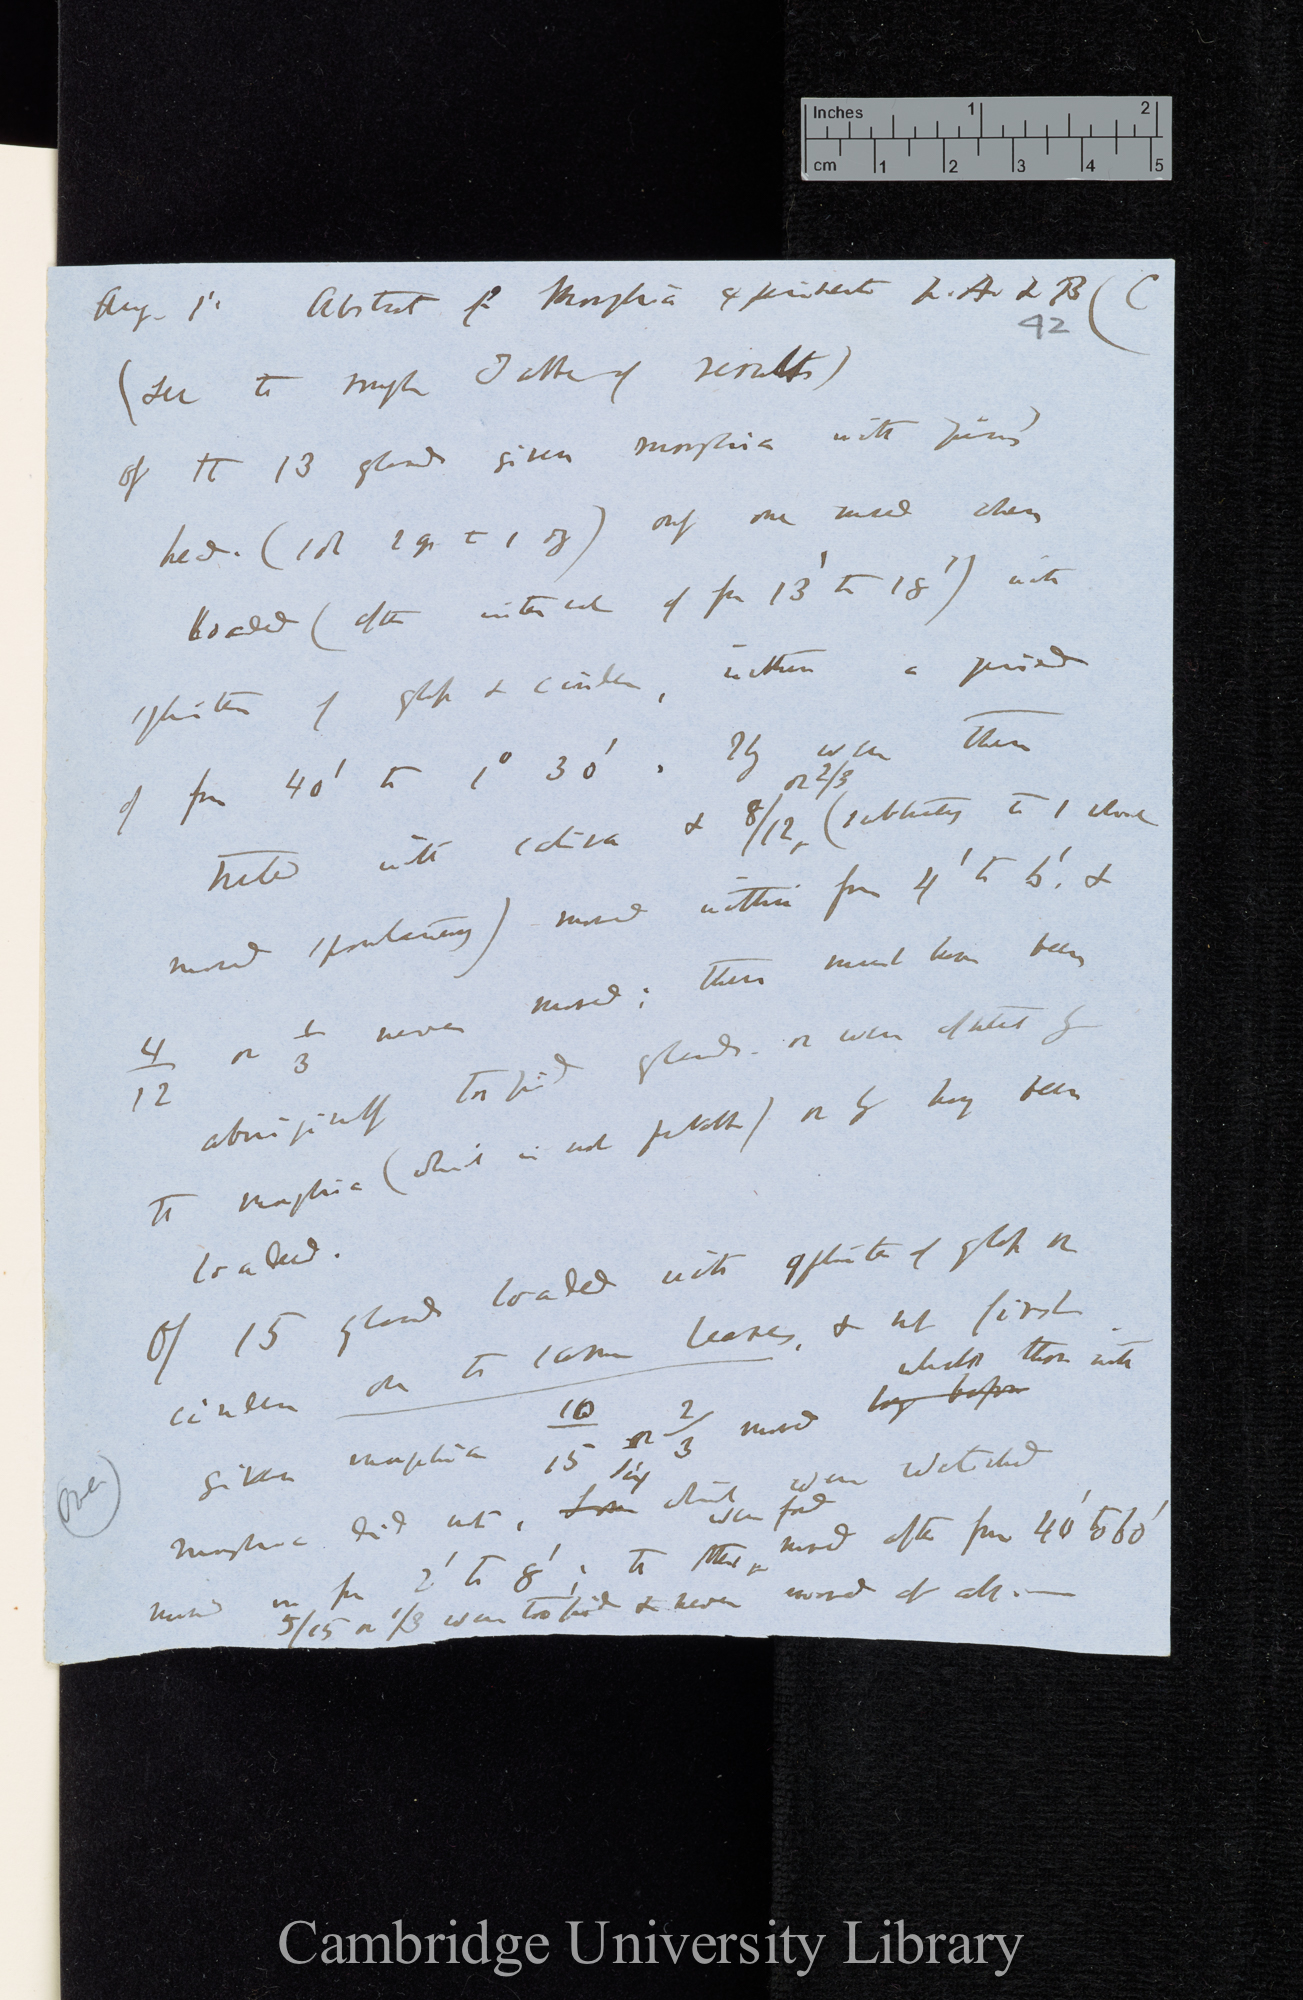 Inches 1 2
cm 1 2 3 4 5
Aug. 1st Abstract of Morphia experiments L. A. & B (C
42
(See to rough Table of results)
Of the 13 glands given morphia with pin's
head. (sol 2 gr to 1 oz) only one moved when
loaded (after interval of from 13' to 18') with
splinters of glass & cinder, within a period
of from 40' to 1° 30'. They were then
or 2/3
treated with saliva & 8/12, (subtracting the 1 which
moved spontaneously) moved within from 4' to 6'. &
4/12 or 1/3 never moved; these must have been
aboriginally torpid glands or were affected by
the morphia (which is not probable) or by having been
loaded.
Of 15 glands loaded with splinters of glass or
cinder on the same leaves, & not first
whilst those with
given morphia 10/15 or 2/3 moved long before
six
morphia did not, some which were watched
were found
moved in from 2' to 8'; the others moved after from 40' to 60'
5/15 or 1/3 were torpid & never moved at all.—
(Over)
Cambridge University Library